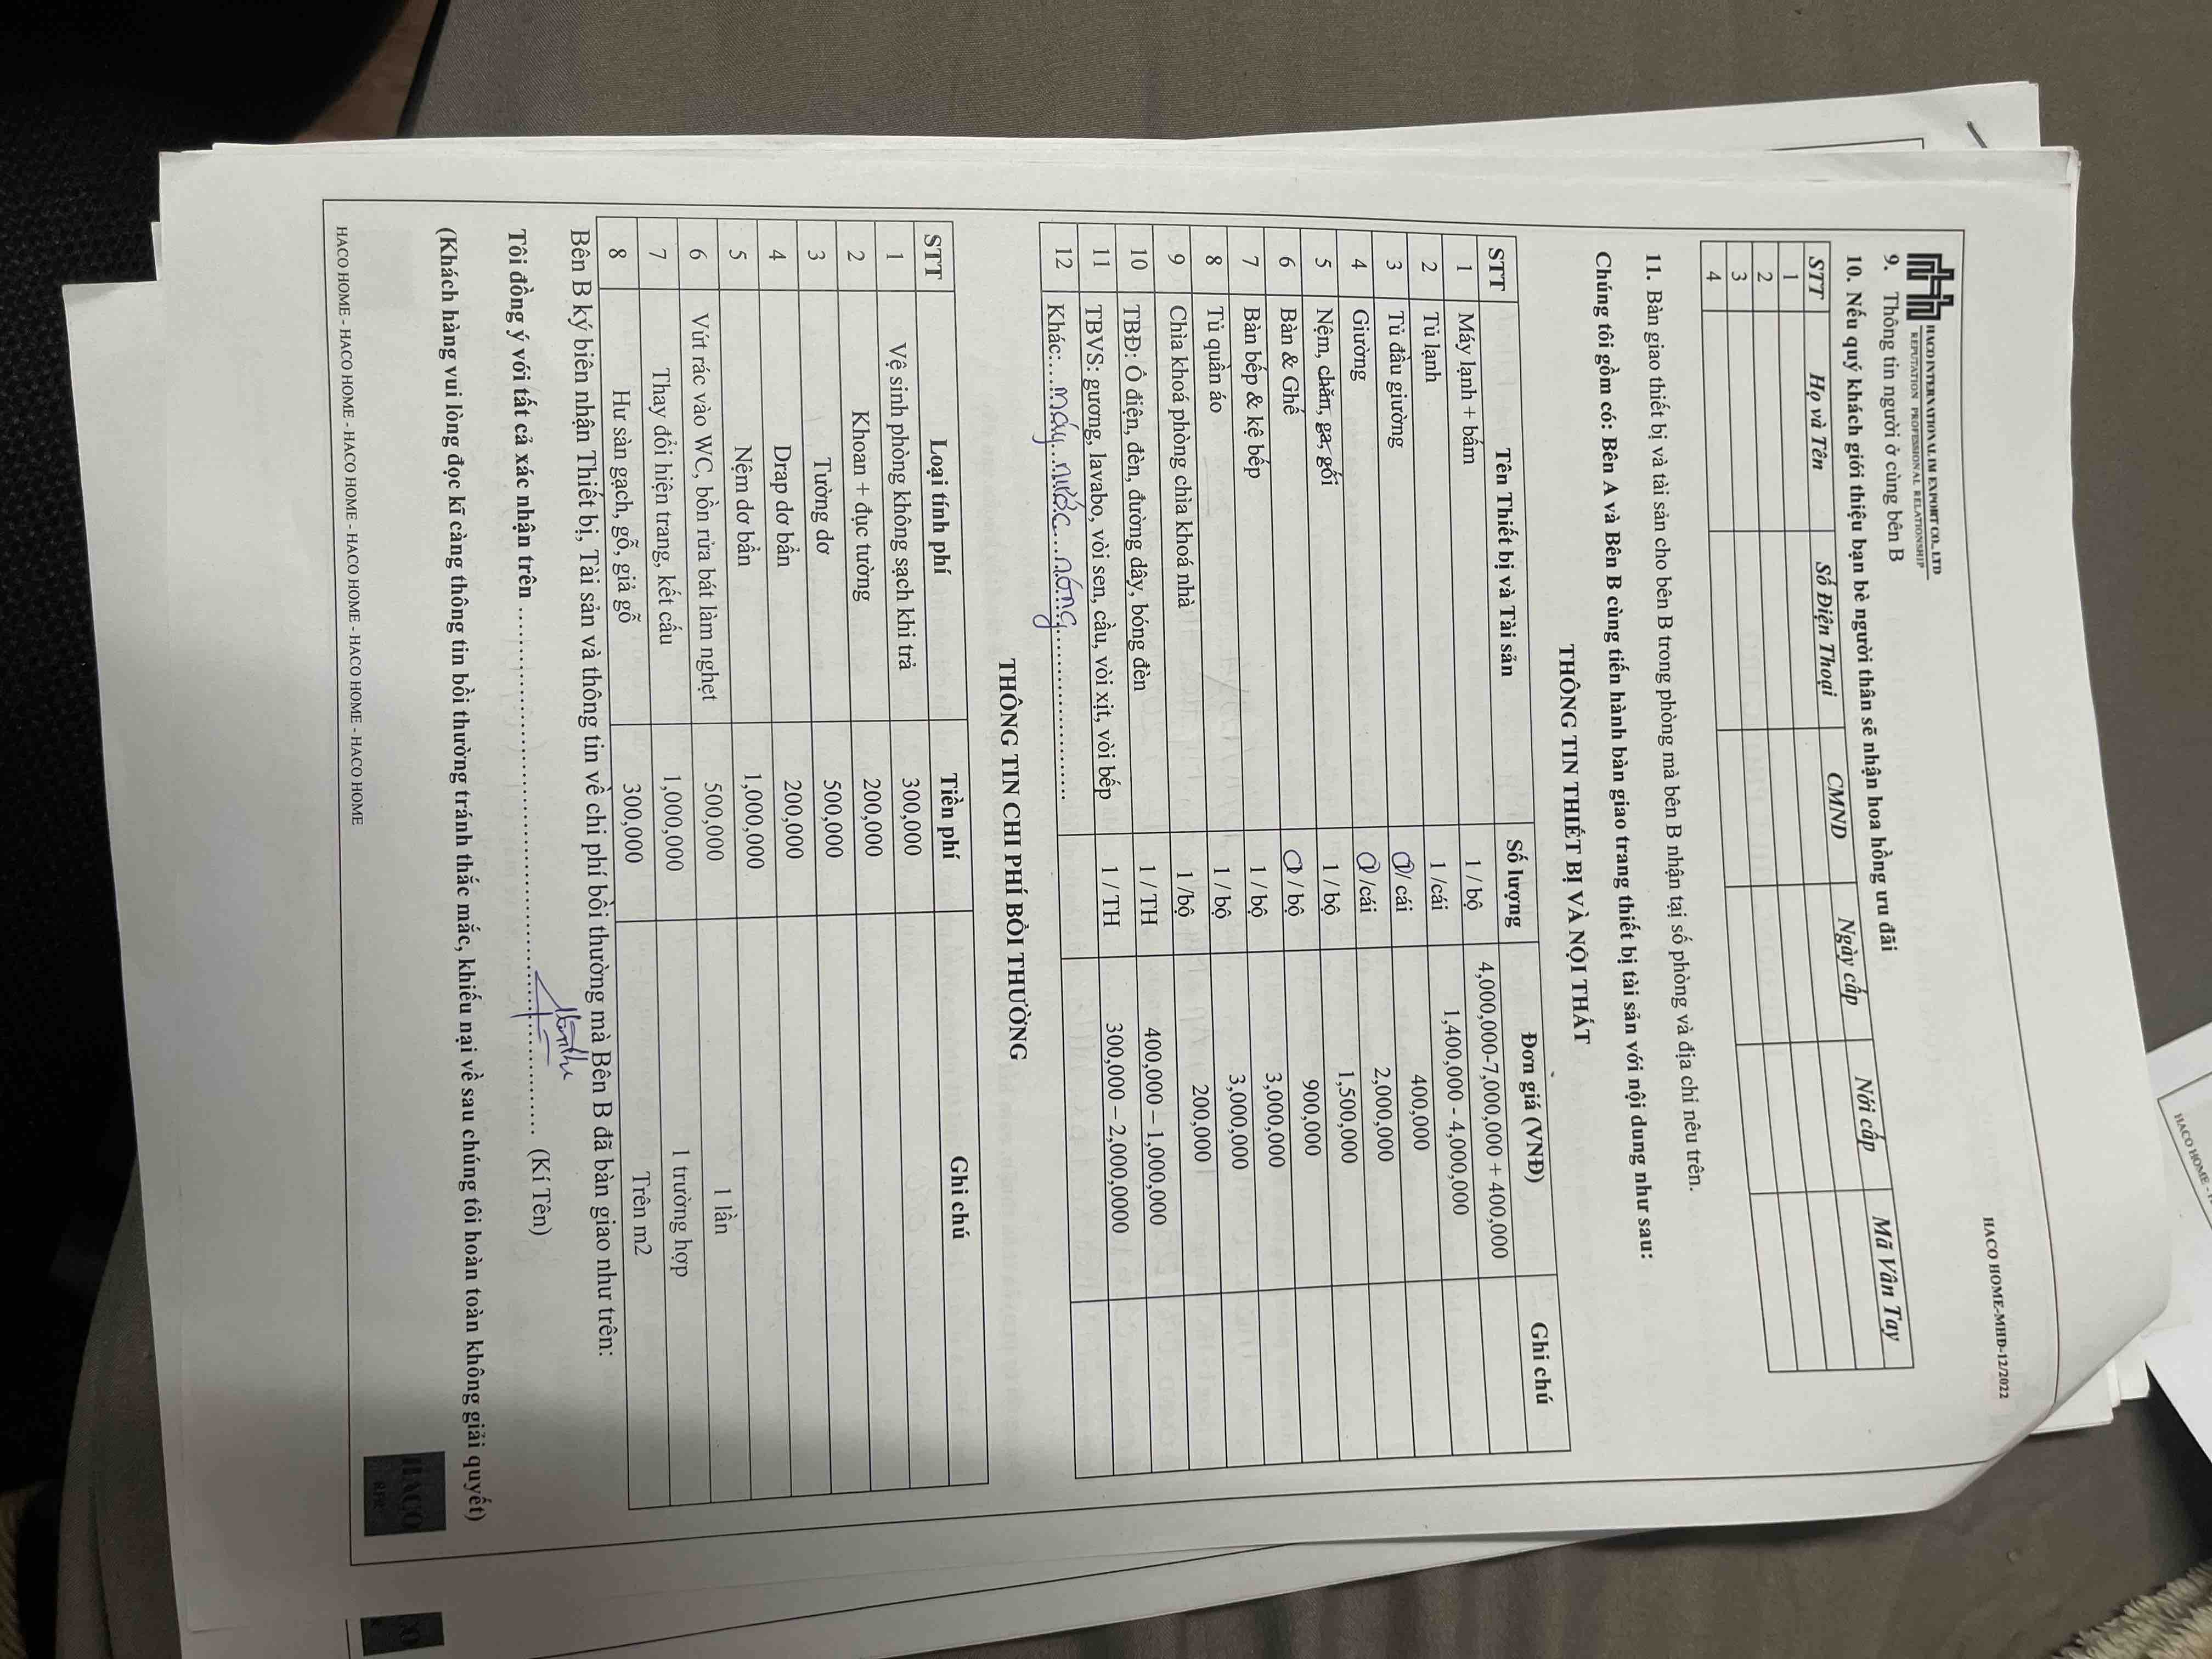 HACO INTERNATIONAL IM EXPORT CO., LTD
REPUTATION PROFESSIONAL RELATIONSHIP
HACO HOME-MHD-12/2022
9. Thông tin người ở cùng bên B
10. Nếu quý khách giới thiệu bạn bè người thân sẽ nhận hoa hồng ưu đãi
STT Họ và Tên Số Điện Thoại CMND Ngày cấp Nơi cấp Mã Vân Tay
1
2
3
4
11. Bàn giao thiết bị và tài sản cho bên B trong phòng mà bên B nhận tại số phòng và địa chỉ nêu trên.
Chúng tôi gồm có: Bên A và Bên B cùng tiến hành bàn giao trang thiết bị tài sản với nội dung như sau:
THÔNG TIN THIẾT BỊ VÀ NỘI THẤT
STT Tên Thiết bị và Tài sản Số lượng Đơn giá (VNĐ) Ghi chú
1 Máy lạnh + bấm 1 / bộ 4,000,000-7,000,000 + 400,000
2 Tủ lạnh 1 /cái 1,400,000 - 4,000,000
3 Tủ đầu giường 1/ cái 400,000
4 Giường 1 /cái 2,000,000
5 Nệm, chăn, ga, gối 1 / bộ 1,500,000
6 Bàn & Ghế 1 / bộ 900,000
7 Bàn bếp & kệ bếp 1 / bộ 3,000,000
8 Tủ quần áo 1 / bộ 3,000,000
9 Chìa khoá phòng chìa khoá nhà 1 /bộ 200,000
10 TBĐ: Ô điện, đèn, đường dây, bóng đèn 1 / TH 400,000 – 1,000,000
11 TBVS: gương, lavabo, vòi sen, cầu, vòi xịt, vòi bếp 1 / TH 300,000 – 2,000,0000
12 Khác:...máy...nước...nóng........................
THÔNG TIN CHI PHÍ BỒI THƯỜNG
STT Loại tính phí Tiền phí Ghi chú
1 Vệ sinh phòng không sạch khi trả 300,000
2 Khoan + đục tường 200,000
3 Tường dơ 500,000
4 Drap dơ bẩn 200,000
5 Nệm dơ bẩn 1,000,000
6 Vứt rác vào WC, bồn rửa bát làm nghẹt 500,000 1 lần
7 Thay đổi hiện trang, kết cấu 1,000,000 1 trường hợp
8 Hư sàn gạch, gỗ, giả gỗ 300,000 Trên m2
Bên B ký biên nhận Thiết bị, Tài sản và thông tin về chi phí bồi thường mà Bên B đã bàn giao như trên:
Tôi đồng ý với tất cả xác nhận trên ........................................................................ (Kí Tên)
(Khách hàng vui lòng đọc kĩ càng thông tin bồi thường tránh thắc mắc, khiếu nại về sau chúng tôi hoàn toàn không giải quyết)
HACO HOME - HACO HOME - HACO HOME - HACO HOME - HACO HOME - HACO HOME - HACO HOME
HACO
HACO HOME -